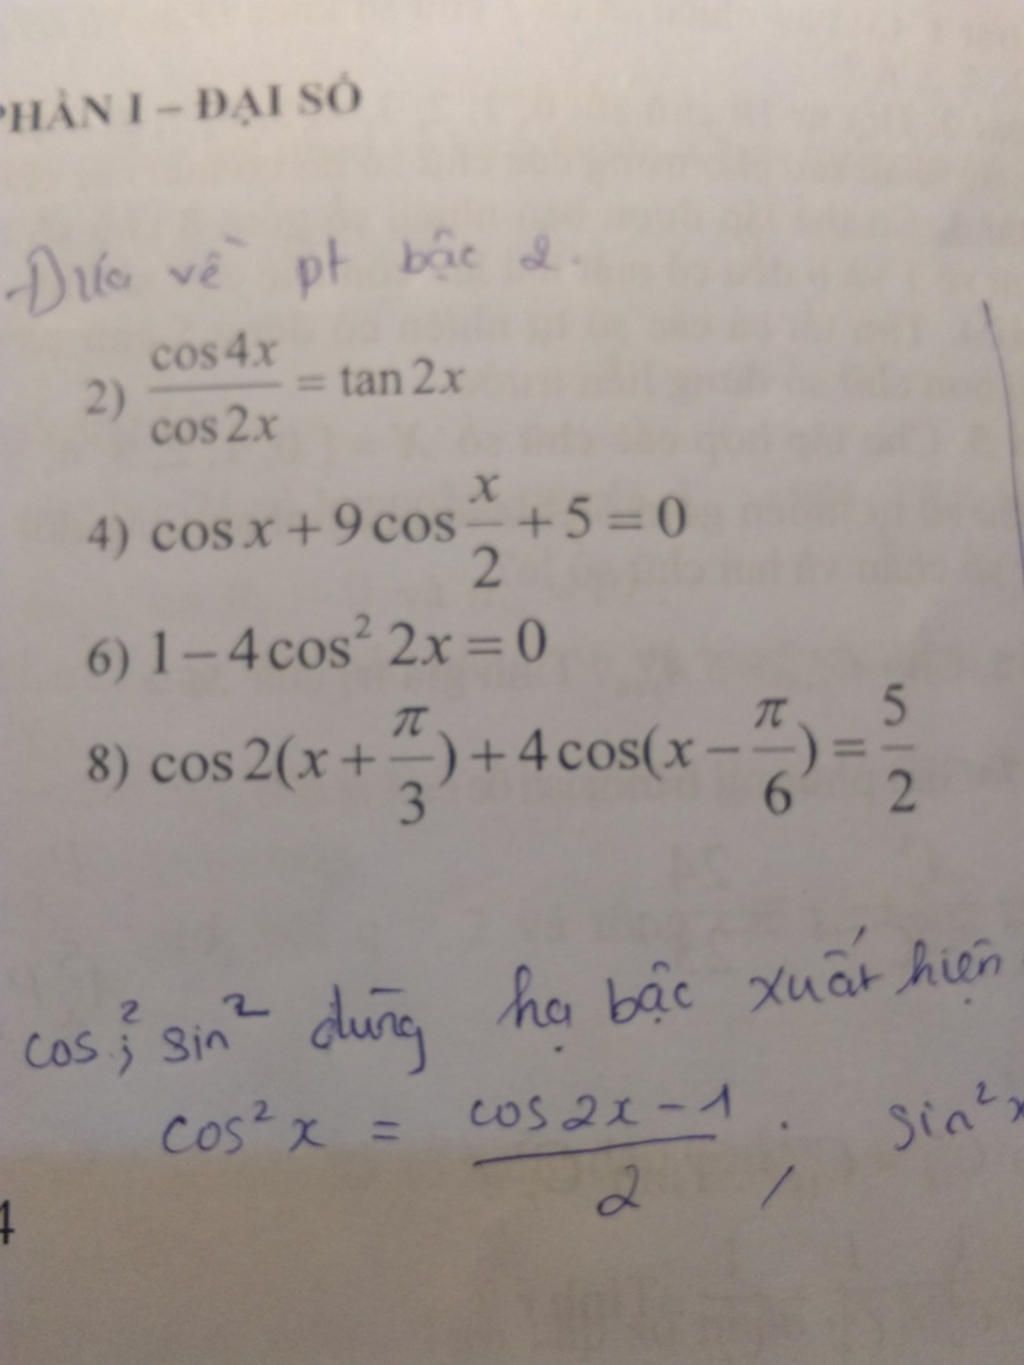 PHẦN I – ĐẠI SỐ
Đưa về pt bậc 2.
2) cos4x/cos2x = tan2x
4) cosx + 9cos x/2 + 5 = 0
6) 1 – 4cos² 2x = 0
8) cos2(x + π/3) + 4cos(x – π/6) = 5/2
cos²; sin² dùng hạ bậc xuất hiện
cos²x = cos2x – 1/2 ; sin²x
4